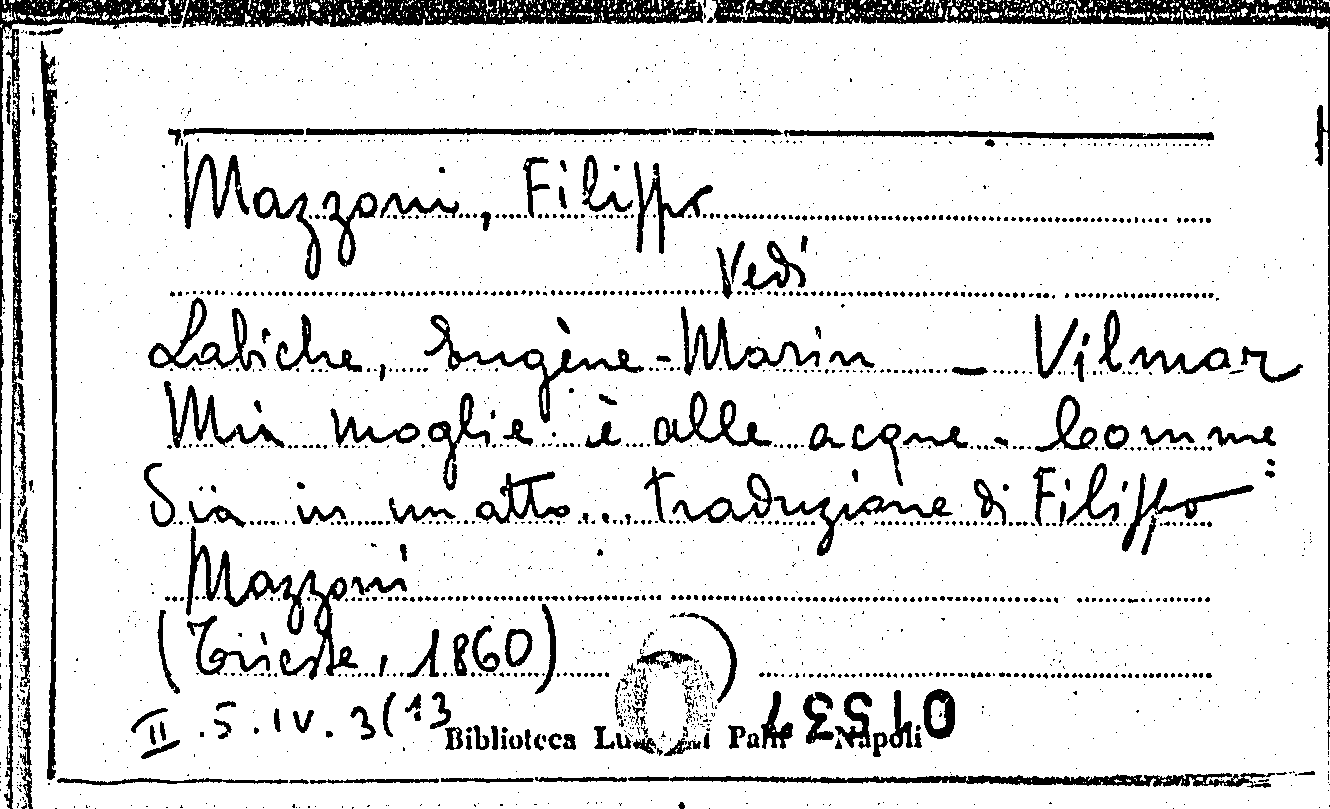 Mazzoni, Filippo
Vedi
Labiche, Eugène-Marin - Vilmar
Mia moglie è alle acque. Comme
dia in un atto... traduzione di Filippo
Mazzoni
(Trieste, 1860)
II.5.IV.3(13
Biblioteca Napoli